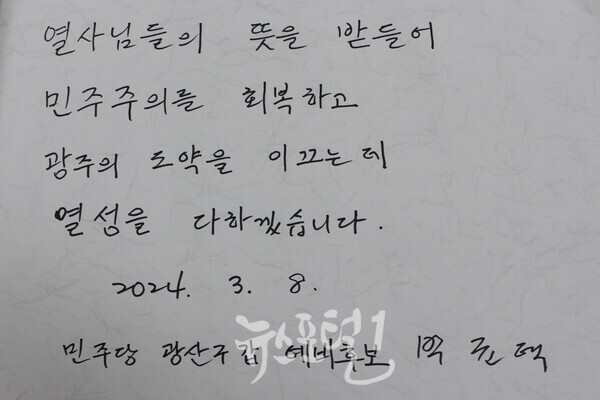 열사님들의 뜻을 받들어
민주주의를 회복하고
광주의 도약을 이끄는데
열성을 다하겠습니다.
2024. 3. 8.
뉴스포털1
민주당 광산구갑 예비후보 박균택